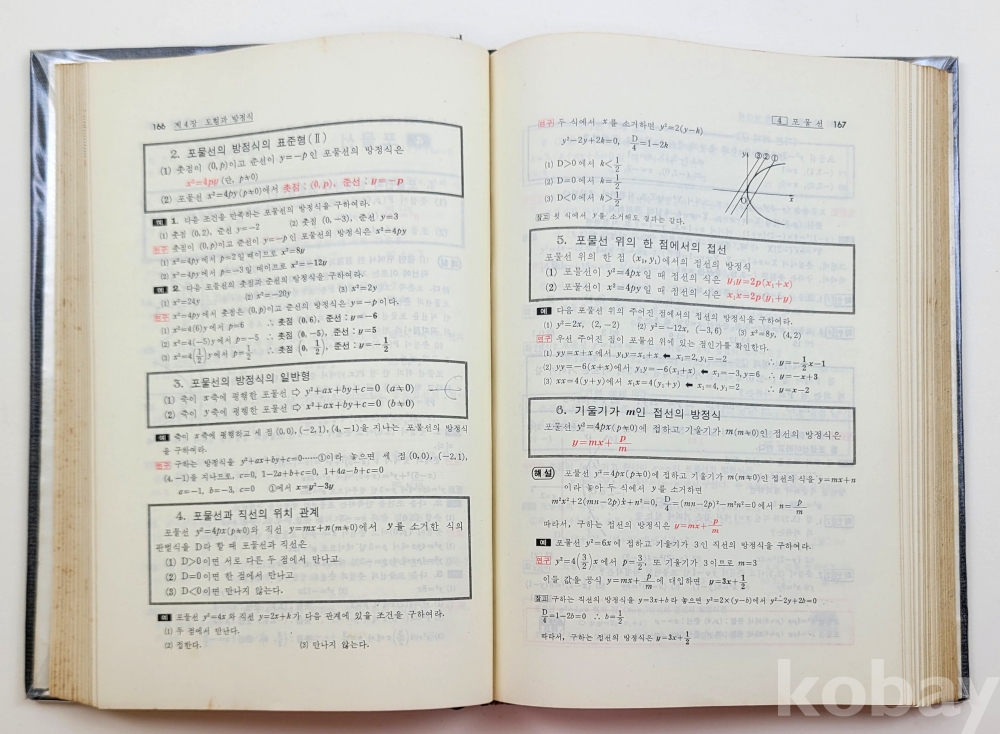 166 제 4 장 도형과 방정식
2. 포물선의 방정식의 표준형 (Ⅱ)
(1) 촛점이 (0, p)이고 준선이 y=−p인 포물선의 방정식은
x²=4py (단, p≠0)
(2) 포물선 x²=4py(p≠0)에서 촛점 : (0, p), 준선 : y=−p
예 1. 다음 조건을 만족하는 포물선의 방정식을 구하여라.
(1) 촛점 (0, 2), 준선 y=−2 (2) 촛점 (0, −3), 준선 y=3
연구 촛점이 (0, p)이고 준선이 y=−p인 포물선의 방정식은 x²=4py
(1) x²=4py에서 p=2일 때이므로 x²=8y
(2) x²=4py에서 p=−3일 때이므로 x²=−12y
예 2. 다음 포물선의 촛점과 준선의 방정식을 구하여라.
(1) x²=24y (2) x²=−20y (3) x²=2y
연구 x²=4py에서 촛점은 (0, p)이고 준선의 방정식은 y=−p이다.
(1) x²=4(6)y에서 p=6 ∴ 촛점 (0, 6), 준선 : y=−6
(2) x²=4(−5)y에서 p=−5 ∴ 촛점 (0, −5), 준선 : y=5
(3) x²=4(1/2)y에서 p=1/2 ∴ 촛점 (0, 1/2), 준선 : y=−1/2
3. 포물선의 방정식의 일반형
(1) 축이 x축에 평행한 포물선 ⇨ y²+ax+by+c=0 (a≠0)
(2) 축이 y축에 평행한 포물선 ⇨ x²+ax+by+c=0 (b≠0)
예 축이 x축에 평행하고 세 점 (0, 0), (−2, 1), (4, −1)을 지나는 포물선의 방정식
을 구하여라.
연구 구하는 방정식을 y²+ax+by+c=0……①이라 놓으면 세 점 (0, 0), (−2, 1),
(4, −1)을 지나므로, c=0, 1−2a+b+c=0, 1+4a−b+c=0
a=−1, b=−3, c=0 ①에서 x=y²−3y
4. 포물선과 직선의 위치 관계
포물선 y²=4px(p≠0)와 직선 y=mx+n(m≠0)에서 y를 소거한 식의
판별식을 D라 할 때 포물선과 직선은
(1) D>0이면 서로 다른 두 점에서 만나고
(2) D=0이면 한 점에서 만나고
(3) D<0이면 만나지 않는다.
예 포물선 y²=4x와 직선 y=2x+k가 다음 관계에 있을 조건을 구하여라.
(1) 두 점에서 만난다.
(2) 접한다. (3) 만나지 않는다.
4 포물선 167
연구 두 식에서 x를 소거하면 y²=2(y−k)
y²−2y+2k=0, D/4=1−2k
(1) D>0에서 k<1/2
(2) D=0에서 k=1/2
(3) D<0에서 k>1/2
y ③②①
O x
참고 윗 식에서 y를 소거해도 결과는 같다.
5. 포물선 위의 한 점에서의 접선
포물선 위의 한 점 (x₁, y₁)에서의 접선의 방정식
(1) 포물선이 y²=4px일 때 접선의 식은 y₁y=2p(x₁+x)
(2) 포물선이 x²=4py일 때 접선의 식은 x₁x=2p(y₁+y)
예 다음 포물선 위의 주어진 점에서의 접선의 방정식을 구하여라.
(1) y²=2x, (2, −2) (2) y²=−12x, (−3, 6) (3) x²=8y, (4, 2)
연구 우선 주어진 점이 포물선 위에 있는 점인가를 확인한다.
(1) yy=x+x에서 y₁y=x₁+x ⬅ x₁=2, y₁=−2 ∴ y=−1/2x−1
(2) yy=−6(x+x)에서 y₁y=−6(x₁+x) ⬅ x₁=−3, y=6 ∴ y=−x+3
(3) xx=4(y+y)에서 x₁x=4(y₁+y) ⬅ x₁=4, y₁=2 ∴ y=x−2
6. 기울기가 m인 접선의 방정식
포물선 y²=4px(p≠0)에 접하고 기울기가 m(m≠0)인 접선의 방정식은
y=mx+p/m
해설 포물선 y²=4px(p≠0)에 접하고 기울기가 m(m≠0)인 접선의 식을 y=mx+n
이라 놓아 두 식에서 y를 소거하면
m²x²+2(mn−2p)x+n²=0, D/4=(mn−2p)²−m²n²=0에서 n=p/m
따라서, 구하는 접선의 방정식은 y=mx+p/m
예 포물선 y²=6x에 접하고 기울기가 3인 직선의 방정식을 구하여라.
연구 y²=4(3/2)x에서 p=3/2, 또 기울기가 3이므로 m=3
이들 값을 공식 y=mx+p/m에 대입하면 y=3x+1/2
참고 구하는 직선의 방정식을 y=3x+b라 놓으면 y²=2×(y−b)에서 y²−2y+2b=0
D/4=1−2b=0 ∴ b=1/2
따라서, 구하는 접선의 방정식은 y=3x+1/2
kobay